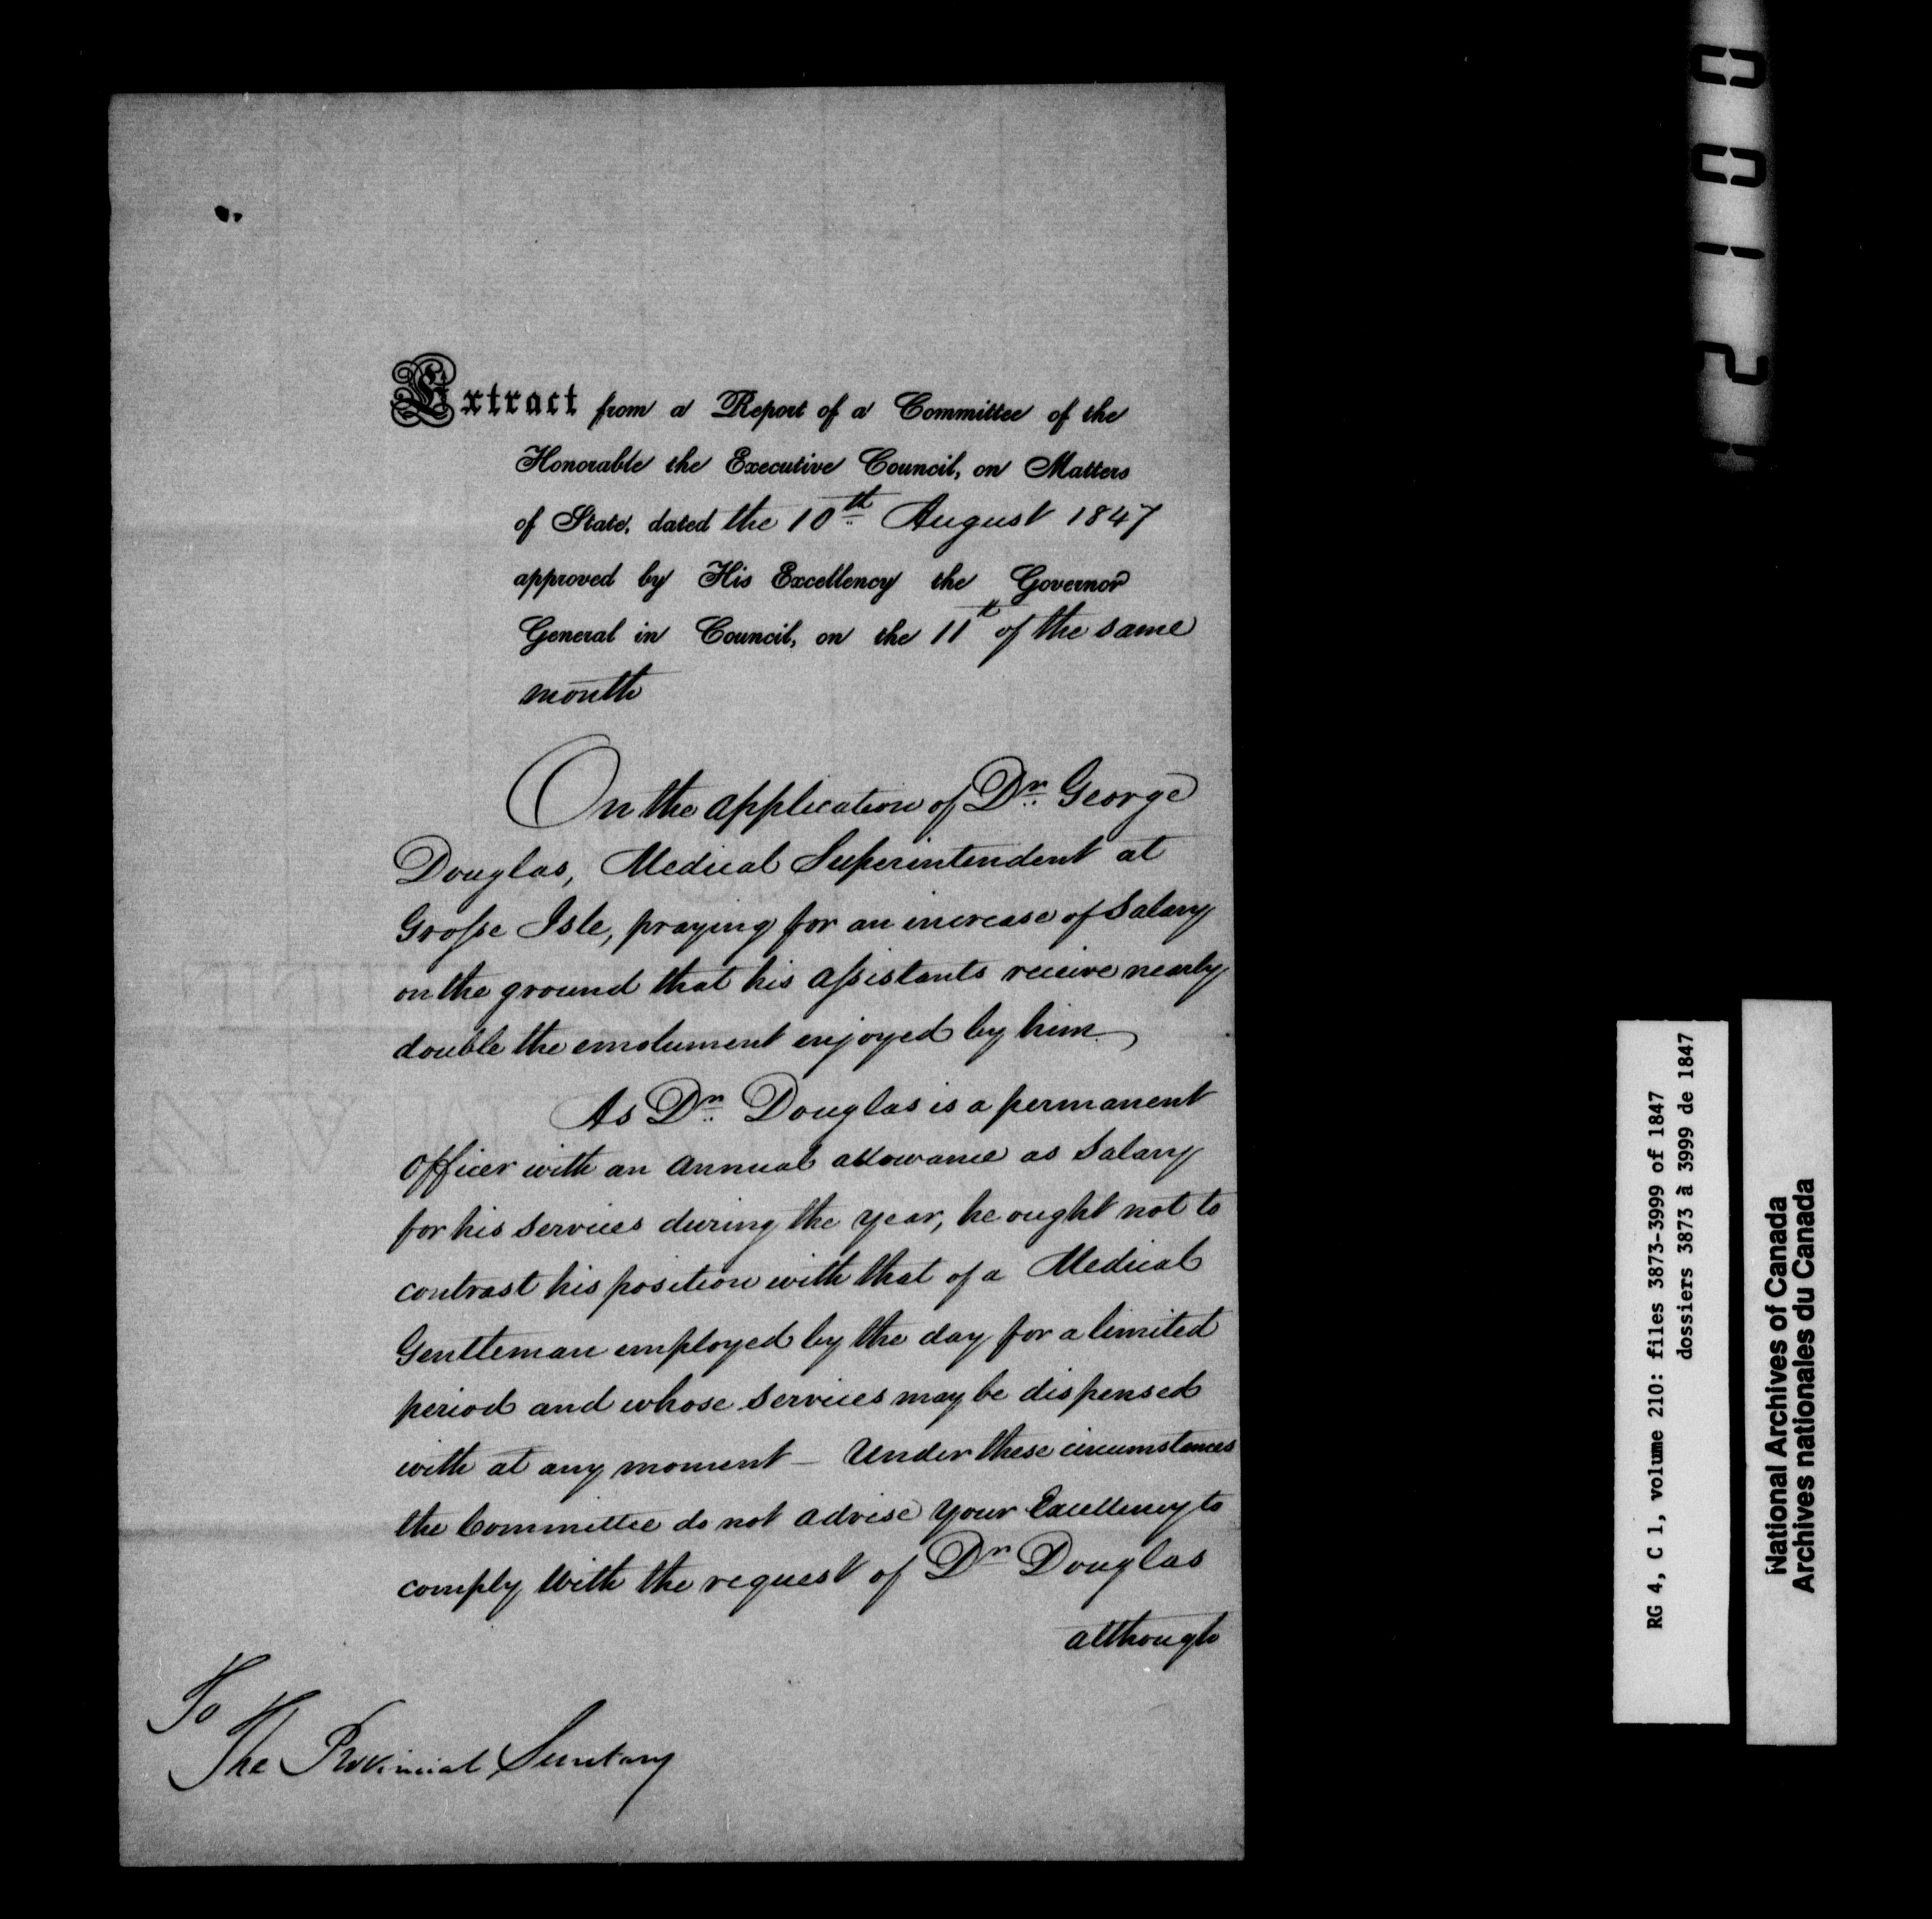 Extract from a Report of a Committee of the
Honorable the Executive Council, on Matters
of State, dated the 10th August 1847
approved by His Excellency the Governor
General in Council, on the 11th of the same
month
On the application of Dr. George
Douglas, Medical Superintendent at
Grosse Isle, praying for an increase of Salary
on the ground that his Assistants receive nearly
double the emolument enjoyed by him.
As Dr. Douglas is a permanent
Officer with an Annual allowance as Salary
for his services during the year, he ought not to
contrast his position with that of a Medical
Gentleman employed by the day for a limited
period and whose services may be dispensed
with at any moment – Under these circumstances
the Committee do not advise Your Excellency to
comply with the request of Dr Douglas
although
To
The Provincial Secretary
0012
RG 4, C 1, volume 210: files 3873-3999 of 1847
dossiers 3873 à 3999 de 1847
National Archives of Canada
Archives nationales du Canada